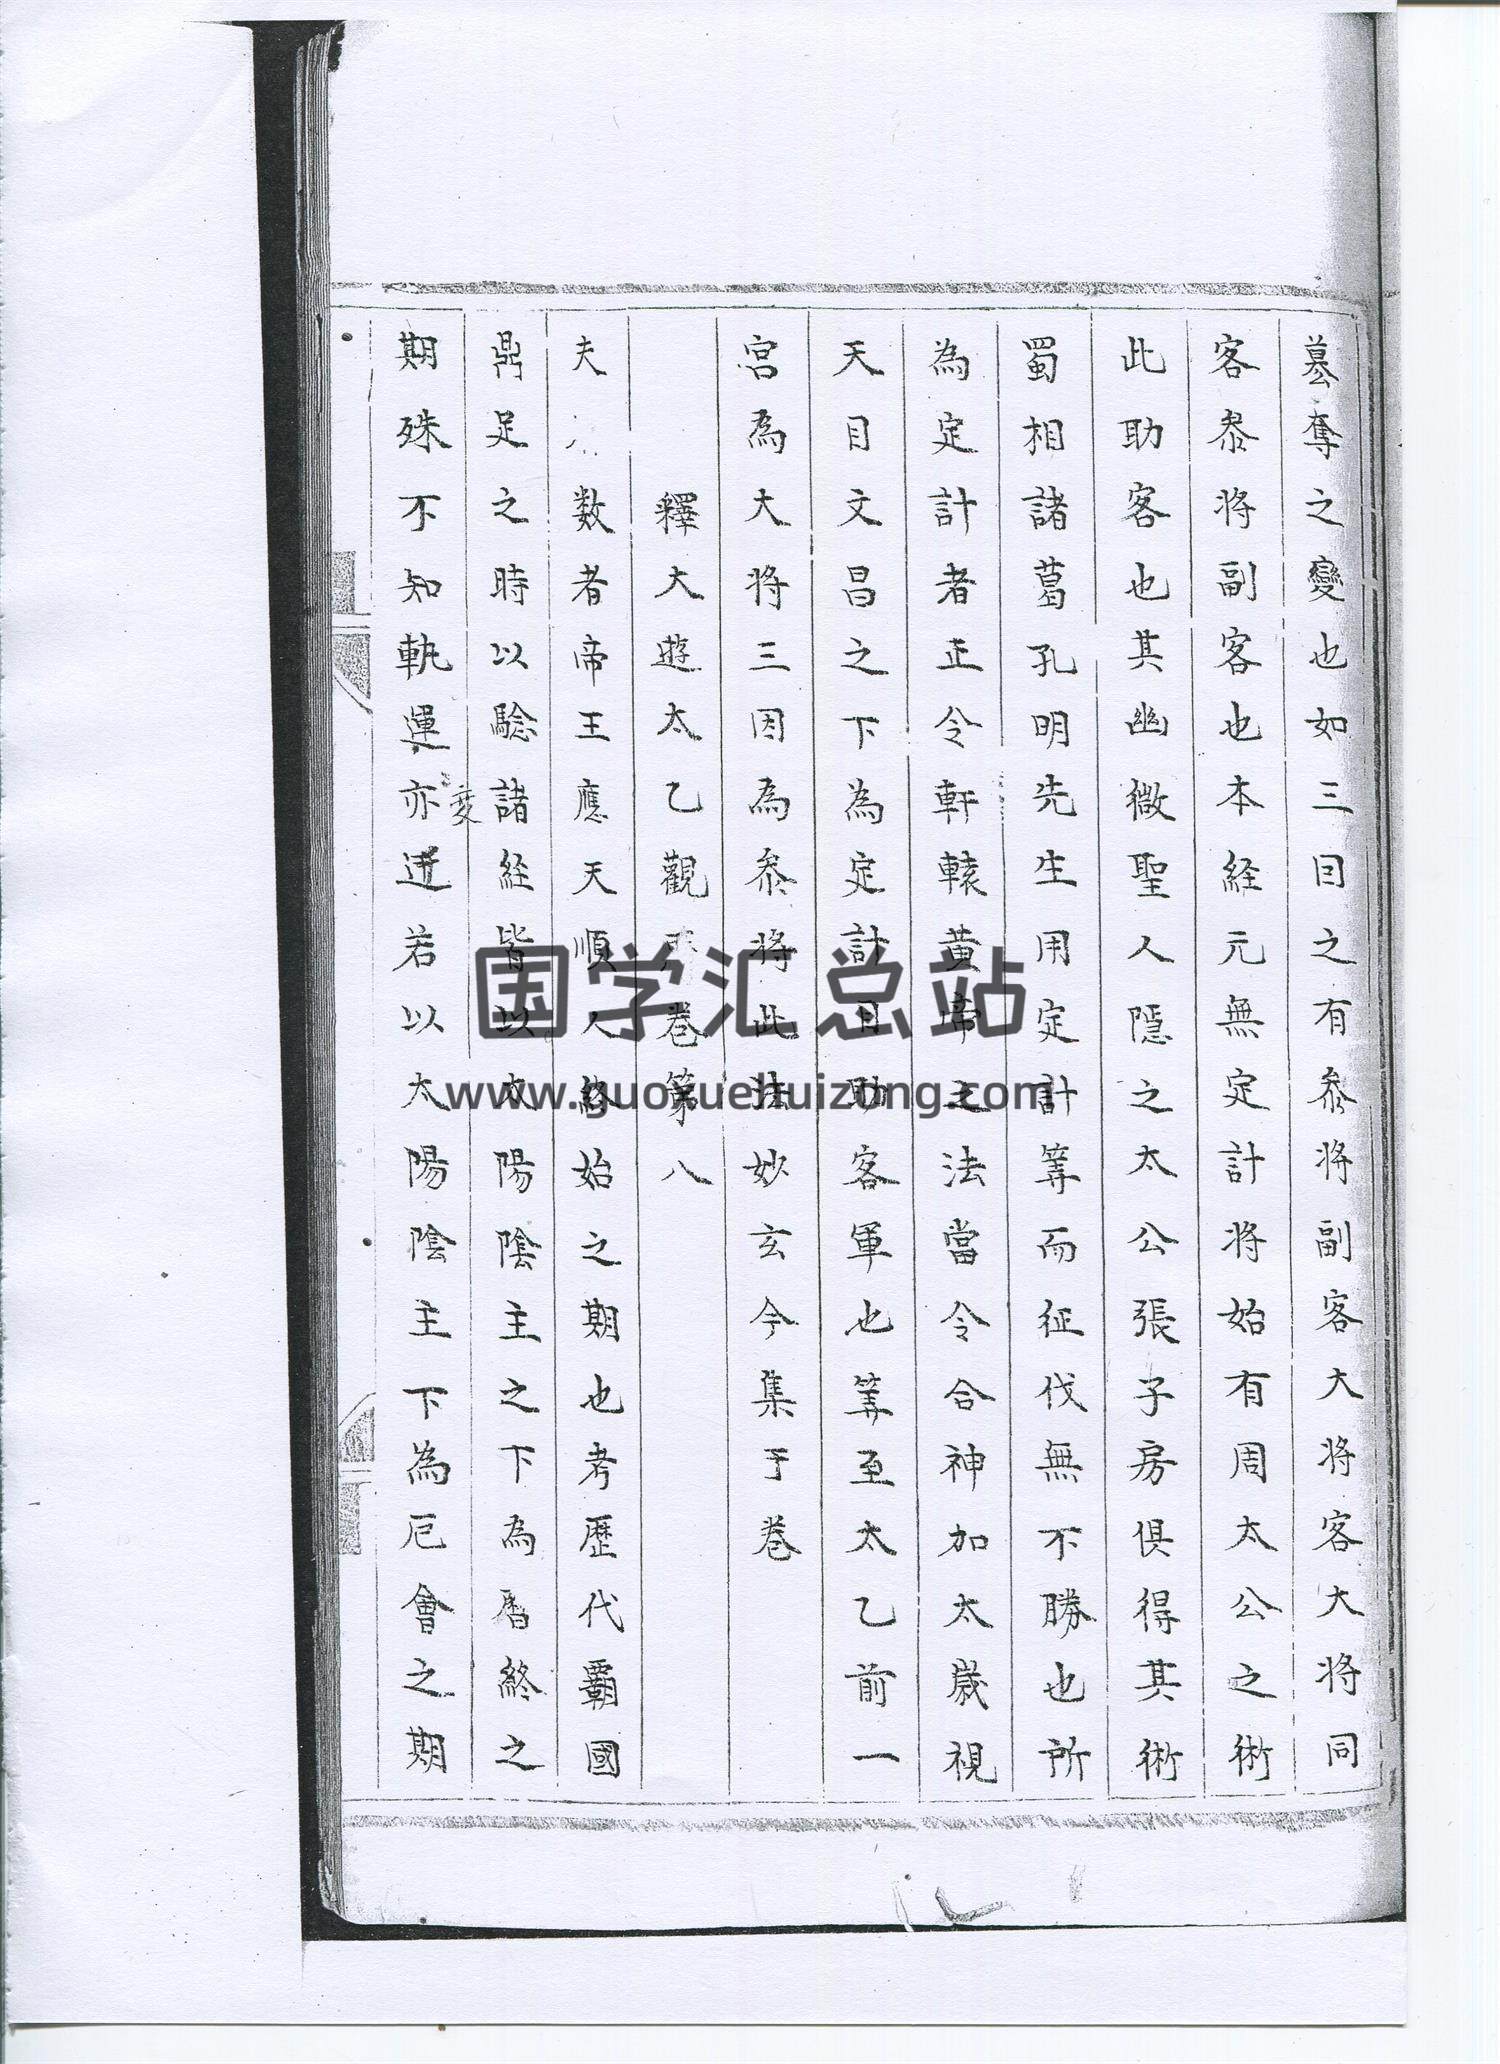 墓奪之變也如三目之有叅将副客大将客大将同
客叅将副客也本経元無定計将始有周太公之術
此助客也其幽微聖人隱之太公張子房俱得其術
蜀相諸葛孔明先生用定計筭而征伐無不勝也所
為定計者正令軒轅黄帝之法當令合神加太歲視
天目文昌之下為定計目助客軍也筭至太乙前一
宫為大将三因為叅将此法妙玄今集于卷
釋大遊太乙觀 卷第八
夫 数者帝王應天順人終始之期也考歷代霸國
鼎足之時以騐諸経皆以太陽陰主之下為曆終之
變
期殊不知執運亦迁若以太陽陰主下為厄會之期
国学汇总站
www.guoxuehuizong.com